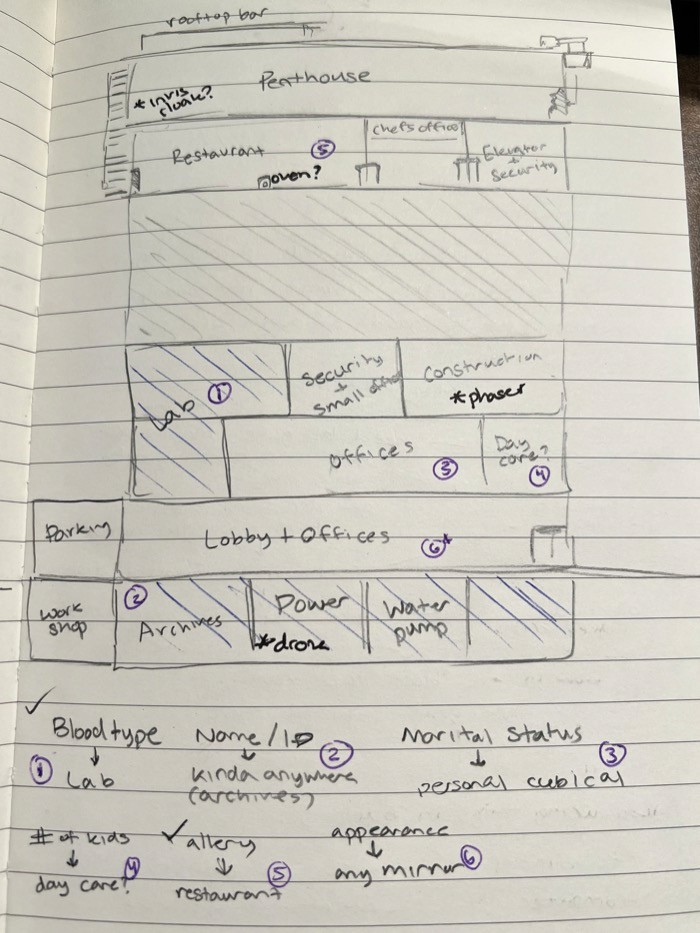 rooftop bar
Penthouse
*invis
cloak?
Restaurant
5
oven?
chefs office
Elevator
+
security
Lab
1
security
+
small office
construction
*phaser
Offices
3
Day
care?
4
Parking
Lobby + Offices
6*
work
shop
2
Archives
Power
*drone
Water
pump
✓
Blood type
↓
1 Lab
Name/ID
↓ 2
kinda anywhere
(archives)
Marital Status
↓ 3
personal cubical
# of kids
↓ 4
day care?
✓ allergy
↓
restaurant 5
appearance
↓
any mirror 6